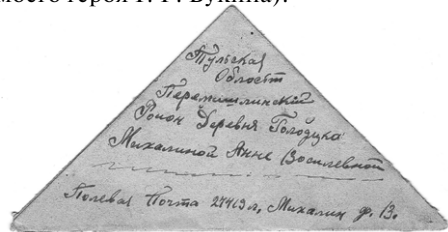 моего героя Г. Г. Букина).
Тульская
Област
Перемишлинский
Район Деревня Голодска
Михалиной Анне Восилевной
Полевая Почта 27419 л, Михалин Ф. В.